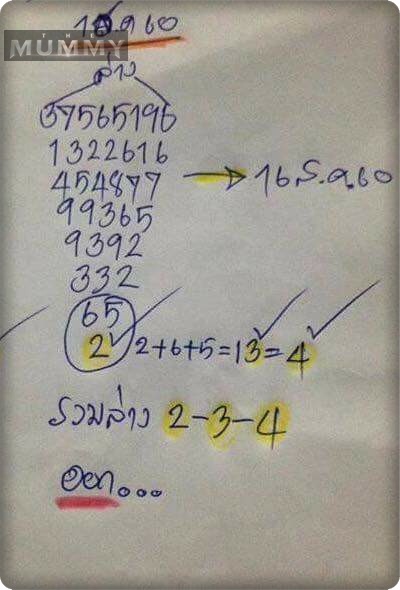 MUMMY
ล่าง
37565196
1322616
454877 → 16 ส.ค.60
99365
9392
332
65
2 2+6+5=13=4
รวมล่าง 2-3-4
ออก...